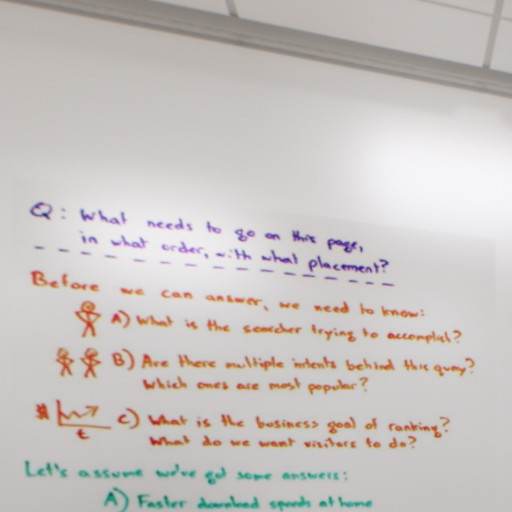 Q: What needs to go on this page,
in what order, with what placement?
Before we can answer, we need to know:
A) What is the searcher trying to accomplish?
B) Are there multiple intents behind this query?
Which ones are most popular?
$ t C) What is the business goal of ranking?
What do we want visitors to do?
Let's assume we've got some answers:
A) Faster download speeds at home